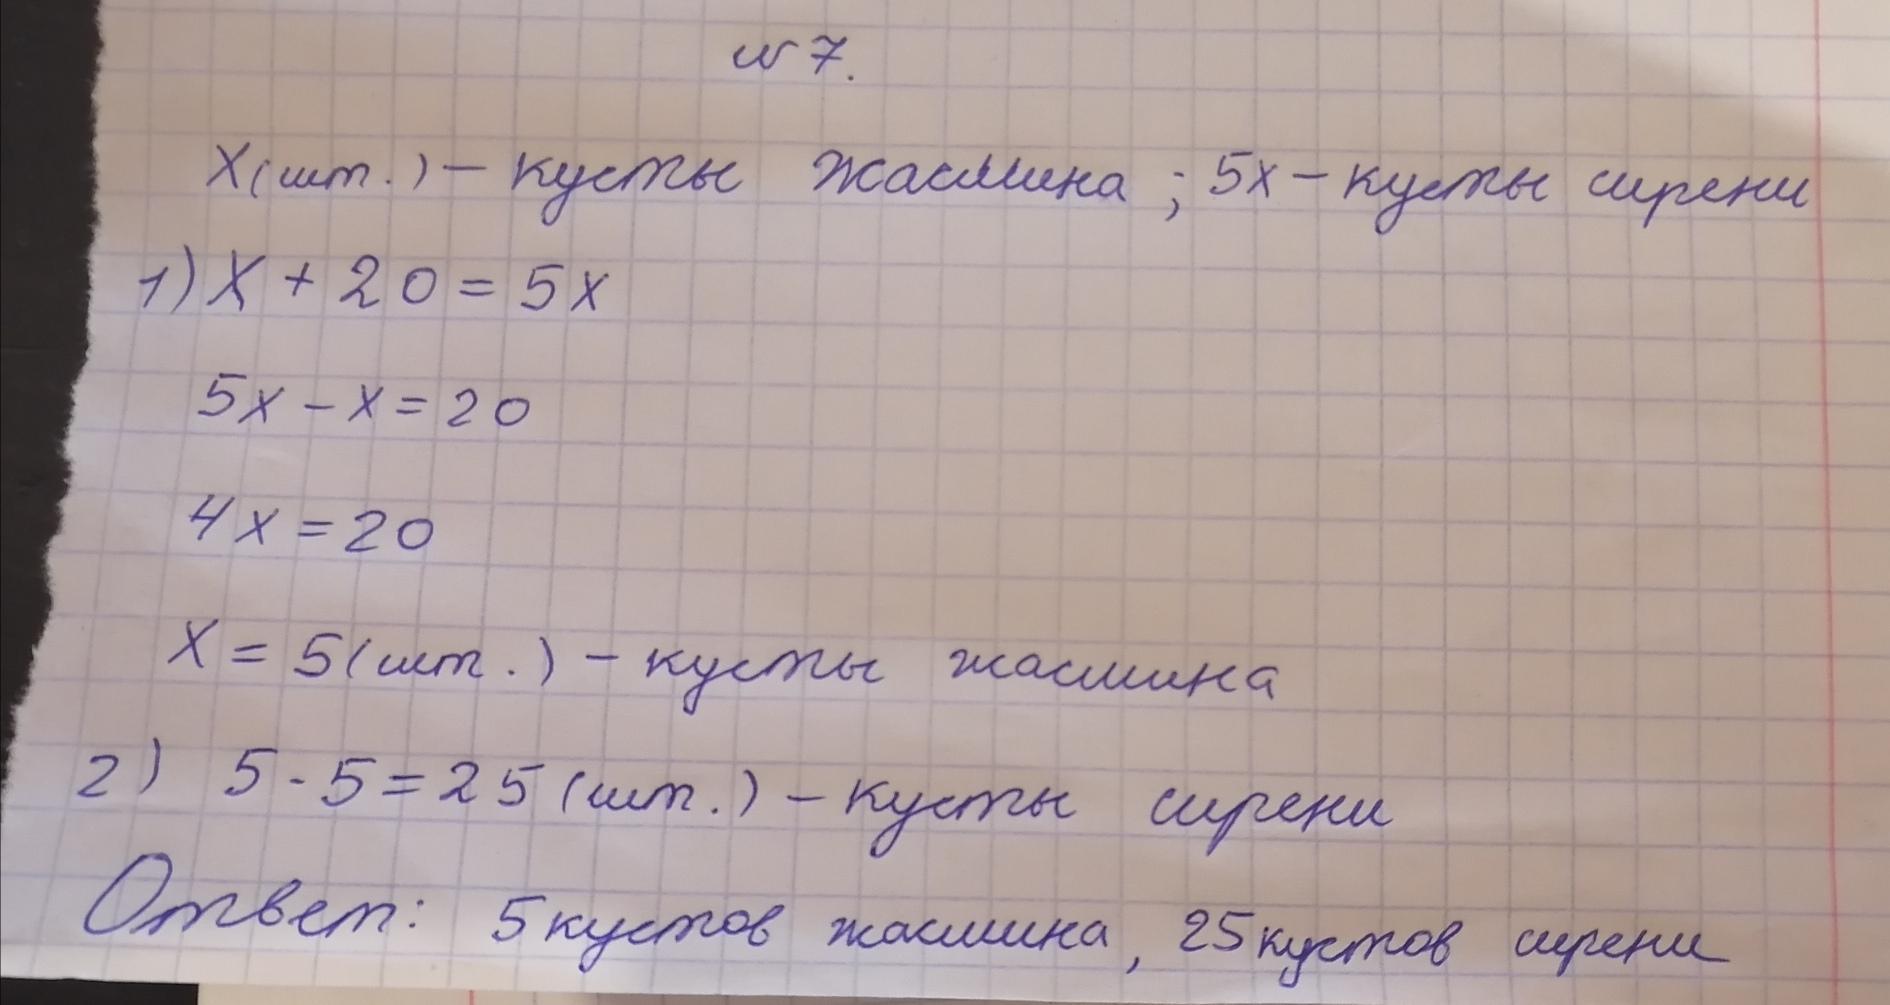 № 7.
X(шт.) – кусты жасмина ; 5x – кусты сирени
1) X + 20 = 5x
5x – x = 20
4x = 20
X = 5(шт.) – кусты жасмина
2) 5 · 5 = 25 (шт.) – кусты сирени
Ответ: 5 кустов жасмина, 25 кустов сирени